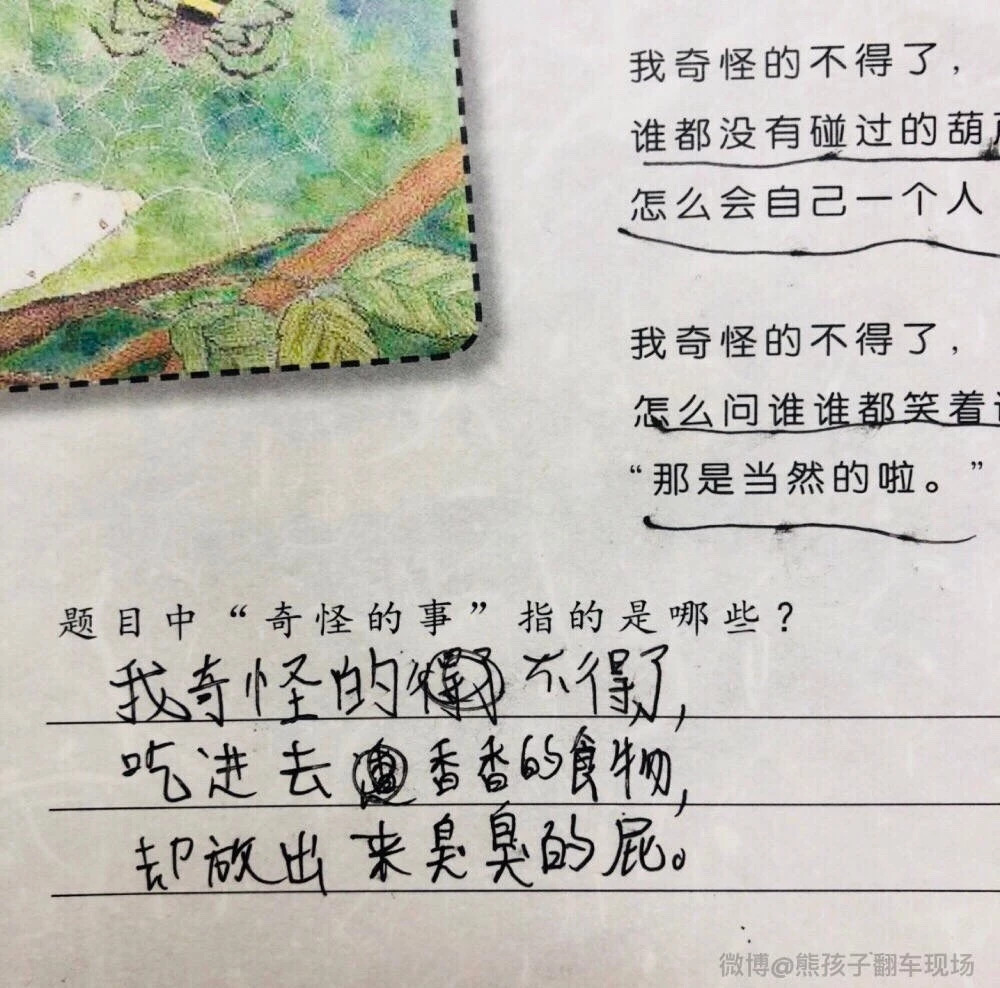 我奇怪的不得了,
谁都没有碰过的葫
怎么会自己一个人
我奇怪的不得了,
怎么问谁谁都笑着
“那是当然的啦。”
题目中“奇怪的事”指的是哪些?
我奇怪的不得了,
吃进去香香的食物,
却放出来臭臭的屁。
微博@熊孩子翻车现场